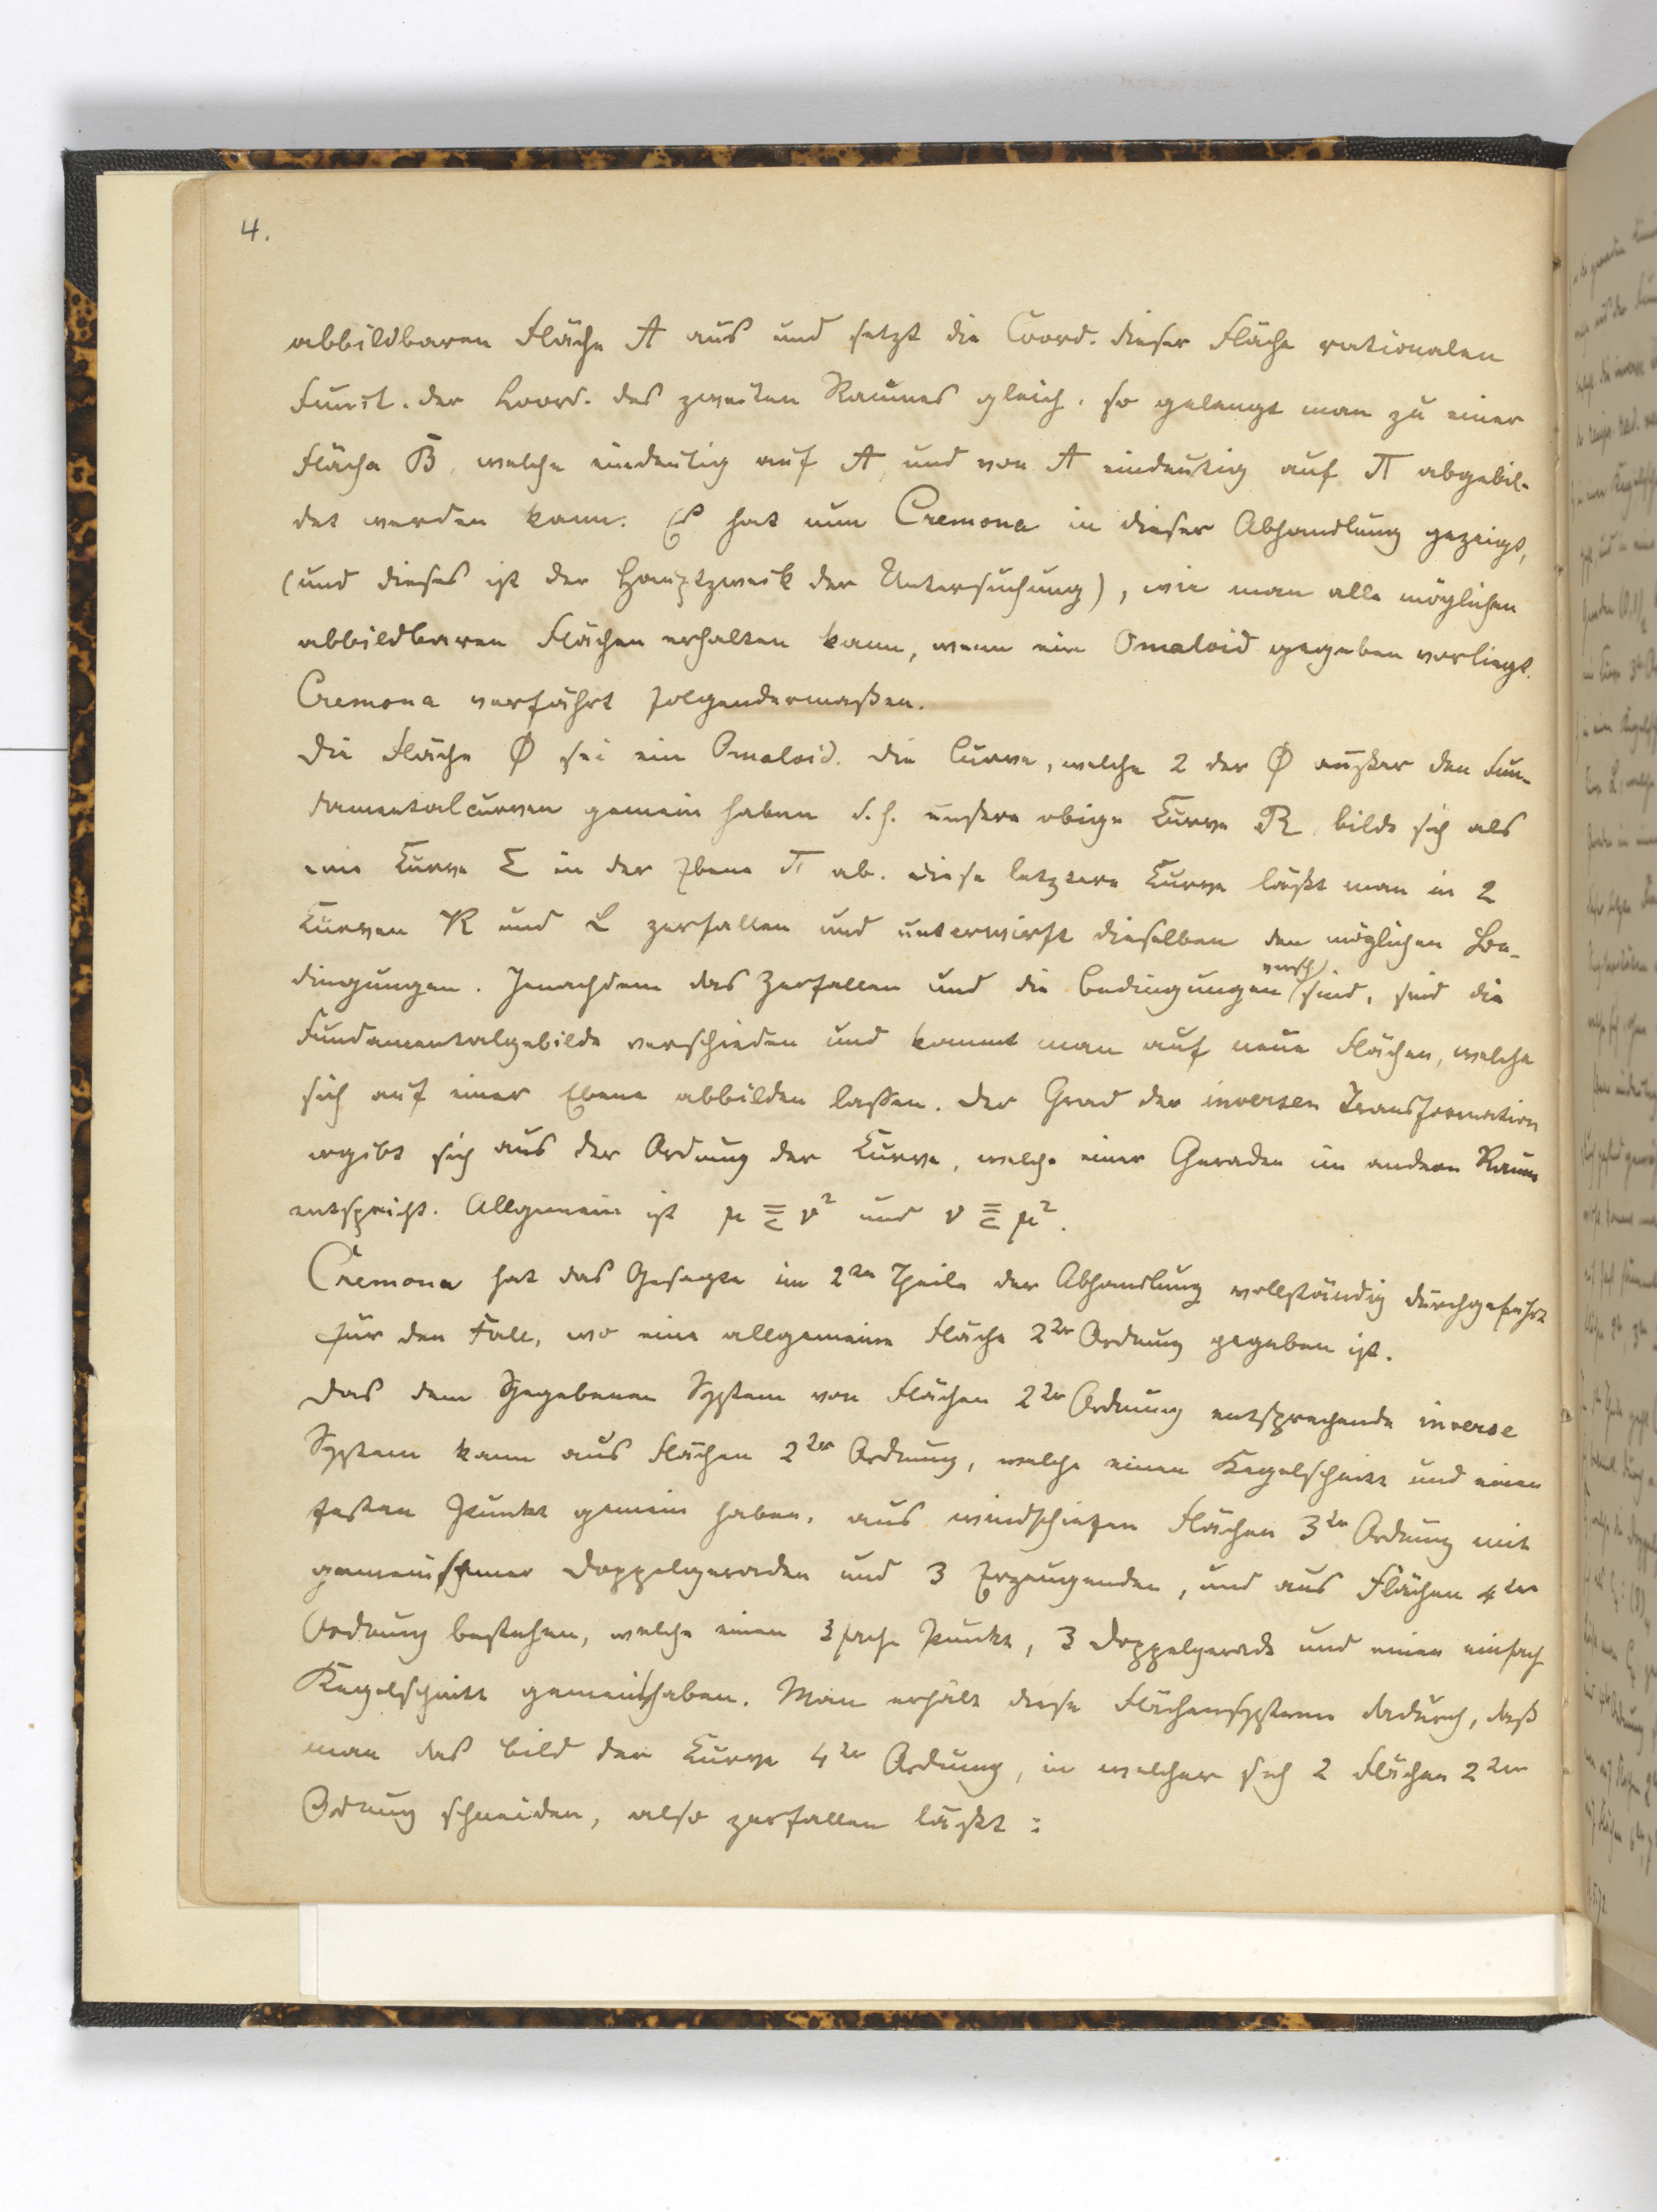 4.
abbildbaren Fläche A aus und setzt die Coord. dieser Fläche rationalen
Funct. der Coord. des zweiten Raumes gleich, so gelangt man zu einer
Fläche B, welche eindeutig auf A und von A eindeutig auf π abgebil-
det werden kann. Es hat nun Cremona in dieser Abhandlung gezeigt,
(und dieses ist der Hauptzweck der Untersuchung), wie man alle möglichen
abbildbaren Flächen erhalten kann, wenn ein Omaloid gegeben vorliegt.
Cremona verfährt folgendermaßen.
Die Fläche Φ sei ein Omaloid. Die Curve, welche 2 der Φ außer den Fun-
damentalcurven gemein haben d.h. unsere obige Curve R bilde sich als
eine Curve Σ in der Ebene π ab. Diese letztere Curve läßt man in 2
Curven K und L zerfallen und unterwirft dieselben den möglichen Be-
dingungen. Jenachdem das Zerfallen und die Bedingungen versch. sind, sind die
Fundamentalgebilde verschieden und kommt man auf neue Flächen, welche
sich auf einer Ebene abbilden lassen. Der Grad der inversen Transformation
ergibt sich aus der Ordnung der Curve, welche einer Geraden im andern Raum
entspricht. Allgemein ist μ ≦ ν² und ν ≦ μ².
Cremona hat das Gesagte im 2ten Theile der Abhandlung vollständig durchgeführt
für den Fall, wo eine allgemeine Fläche 2ter Ordnung gegeben ist.
Das dem gegebenen System von Flächen 2ter Ordnung entsprechende inverse
System kann aus Flächen 2ter Ordnung, welche einen Kegelschnitt und einen
festen Punkt gemein haben, aus windschiefen Flächen 3ter Ordnung mit
gemeinsamer Doppelgeraden und 3 Erzeugenden, und aus Flächen 4ter
Ordnung bestehen, welche einen 3fache Punkt, 3 Doppelgerade und einen einfach
Kegelschnitt gemein haben. Man erhält diese Flächensysteme dadurch, daß
man das Bild der Curve 4ter Ordnung, in welcher sich 2 Flächen 2ter
Ordnug schneiden, also zerfallen läßt: